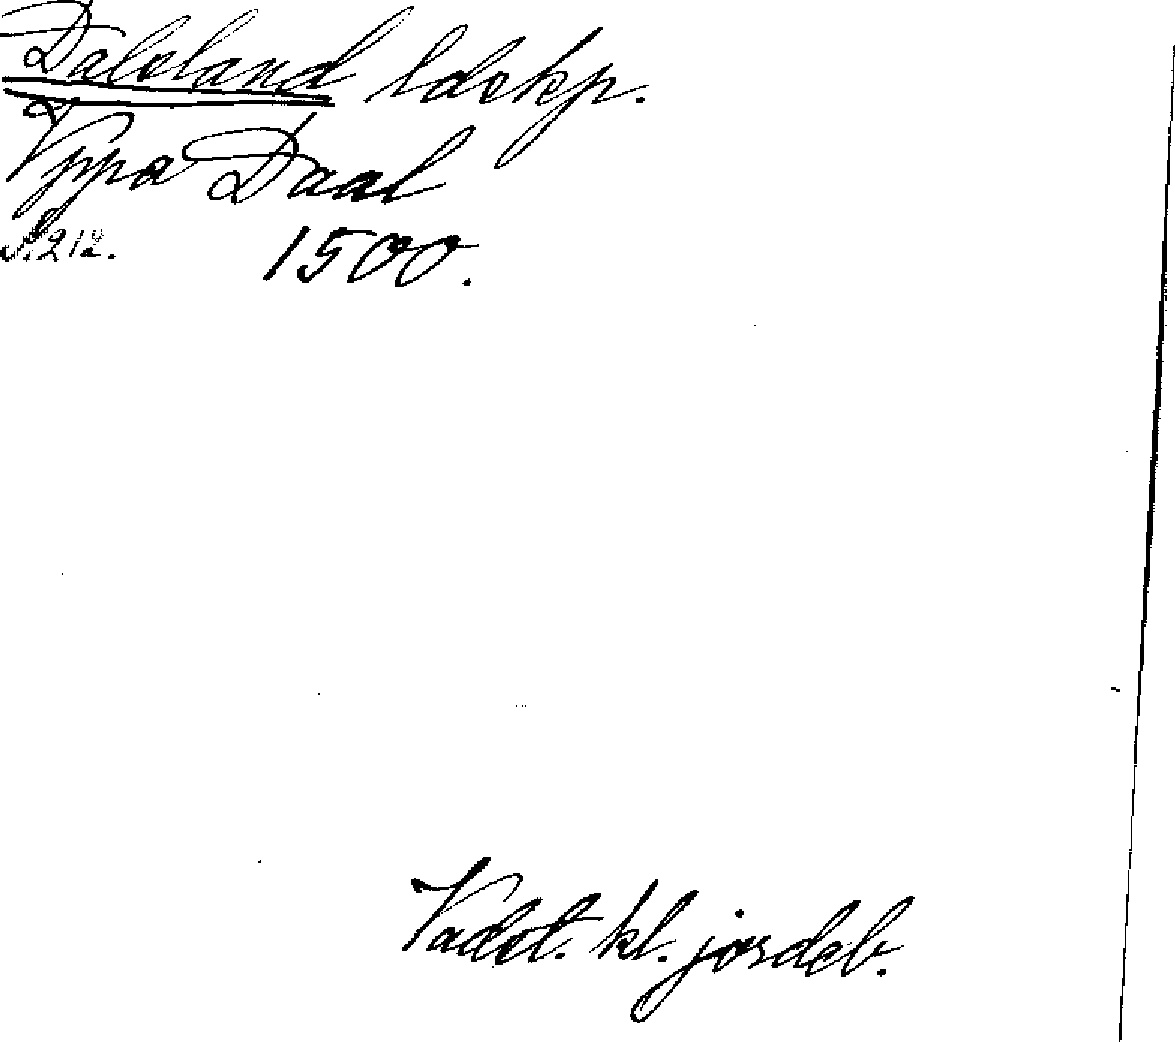 Dalsland ldskp.
Vppa Daal
S. 212. 1500.
Vadst. kl. jordeb.